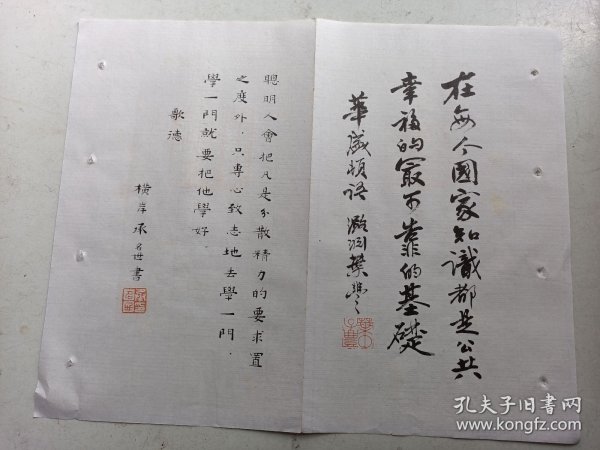 在每个國家知識都是公共
幸福的最可靠的基礎
華盛頓語
聰明人會把凡是分散精力的要求置
之度外．只專心致志地去學一門．
學一門就要把他學好．
歌德
橫岸承名世書
孔夫子旧书网
www.kongfz.com